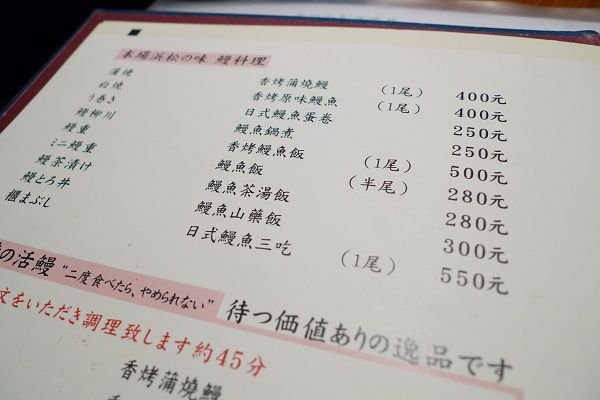 本場浜松の味 鰻料理
蒲焼 香烤蒲燒鰻 (1尾) 400元
白焼 香烤原味鰻魚 (1尾) 400元
う巻き 日式鰻魚蛋卷 250元
鰻柳川 鰻魚鍋煮 250元
鰻重 香烤鰻魚飯 (1尾) 500元
ミニ鰻重 鰻魚飯 (半尾) 280元
鰻茶漬け 鰻魚茶湯飯 280元
鰻とろ丼 鰻魚山藥飯 300元
櫃まぶし 日式鰻魚三吃 (1尾) 550元
の活鰻 “二度食べたら、やめられない” 待つ価値ありの逸品です
文をいただき調理致します約45分
香烤蒲燒鰻